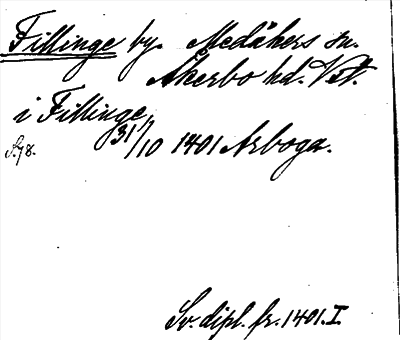 Fillinge by. Medåkers sn.
Åkerbo hd. Vst.
i Fillinge,
S. 78.
31/10 1401 Arboga.
Sv. dipl. fr. 1401. I.